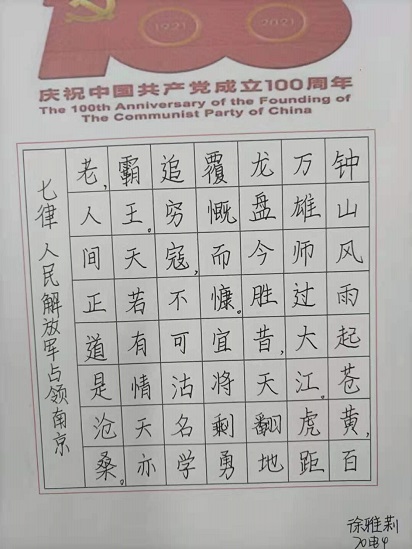 100
1921
2021
庆祝中国共产党成立100周年
The 100th Anniversary of the Founding of
The Communist Party of China
钟山风雨起苍黄,百
万雄师过大江。虎距
龙盘今胜昔,天翻地
覆慨而慷。宜将剩勇
追穷寇,不可沽名学
霸王。天若有情天亦
老,人间正道是沧桑。
七律 人民解放军占领南京
徐雅莉
20电4